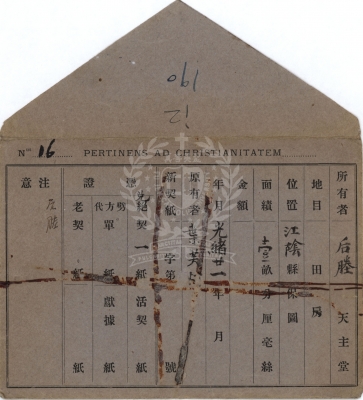 190
12
Nº 16 PERTINENS AD CHRISTIANITATEM
所有者 后塍 天主堂
地目 田 房
位置 江陰縣 保 圖
面積 畝 分 厘 毫 絲
金額
年月 光緒廿一年 月
原有者
新契紙 字第 號
絕契一紙 活契 紙
證 代方單 紙 獻據 紙
老契 紙
注意 后塍